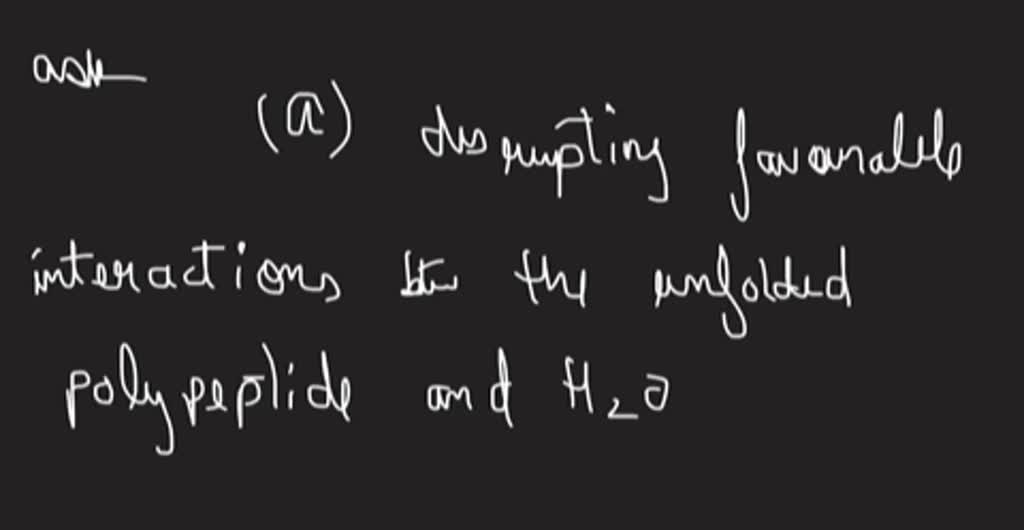 ask
(a) disrupting favourable
interactions btw the unfolded
polypeptide and H₂O